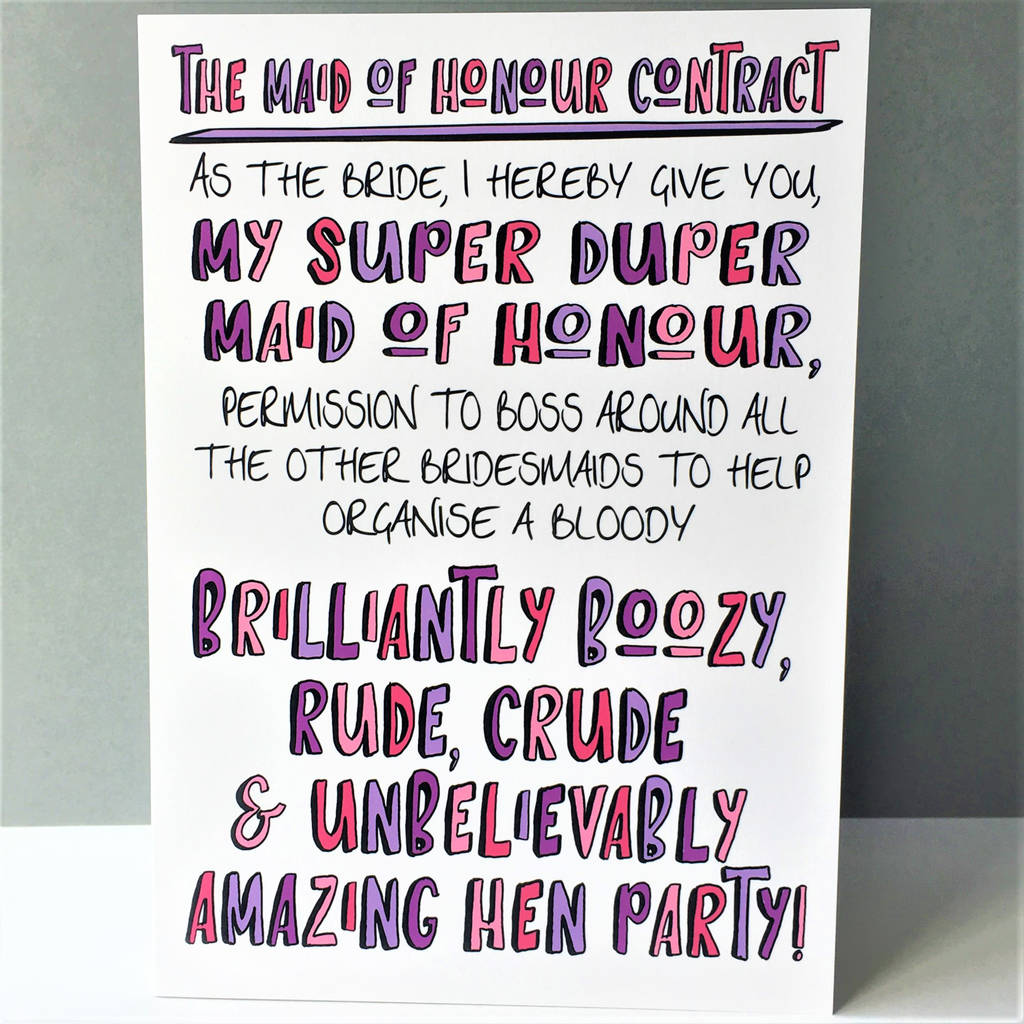 THE MAID OF HONOUR CONTRACT
AS THE BRIDE, I HEREBY GIVE YOU,
MY SUPER DUPER
MAID OF HONOUR,
PERMISSION TO BOSS AROUND ALL
THE OTHER BRIDESMAIDS TO HELP
ORGANISE A BLOODY
BRILLIANTLY BOOZY,
RUDE, CRUDE
& UNBELIEVABLY
AMAZING HEN PARTY!